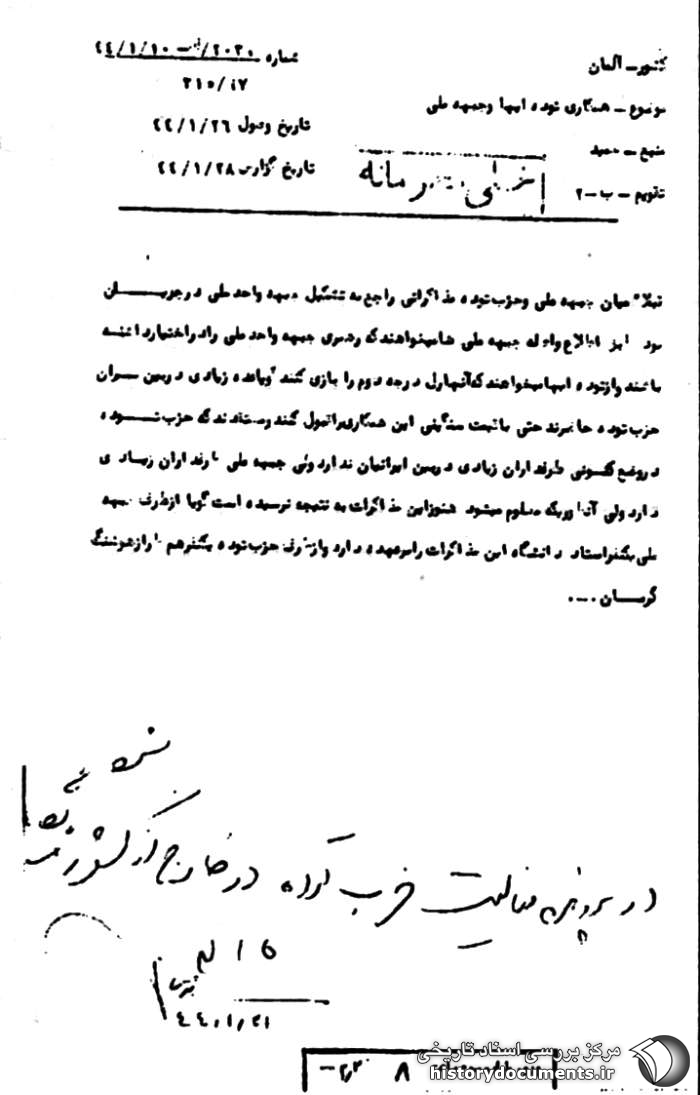 کشور ـ آلمان
موضوع ـ همکاری توده ایها و جبهه ملی
منبع ـ
تقویم ـ ب ـ ۲
شماره
۳۱۵/
تاریخ وصول ۴۴/۱/۲۶
تاریخ گزارش ۴۴/۱/۲۸
خیلی محرمانه
میان جبهه ملی و حزب توده مذاکراتی راجع به تشکیل جبهه واحد ملی در جریان
بود اطلاع جبهه ملی ها میخواهند که رهبری جبهه واحد ملی را در اختیار داشته
باشند و از توده ایها میخواهند که آنها رل درجه دوم را بازی کنند گویا عده زیادی در بین سران
حزب توده حاضرند حتی با این همکاری را قبول کنند و معتقدند که حزب توده
در وضع کنونی طرفداران زیادی در بین ایرانیان ندارد ولی جبهه ملی طرفداران زیادی
دارد ولی آنطوریکه معلوم میشود هنوز این مذاکرات به نتیجه نرسیده است گویا از طرف جبهه
ملی یکنفر استاد دانشگاه این مذاکرات را بر عهده دارد و از طرف حزب توده یکنفر هم
در پرونده فعالیت حزب توده در خارج از کشور
۴۴/۱/۳۱
۸
مرکز بررسی اسناد تاریخی
historydocuments.ir